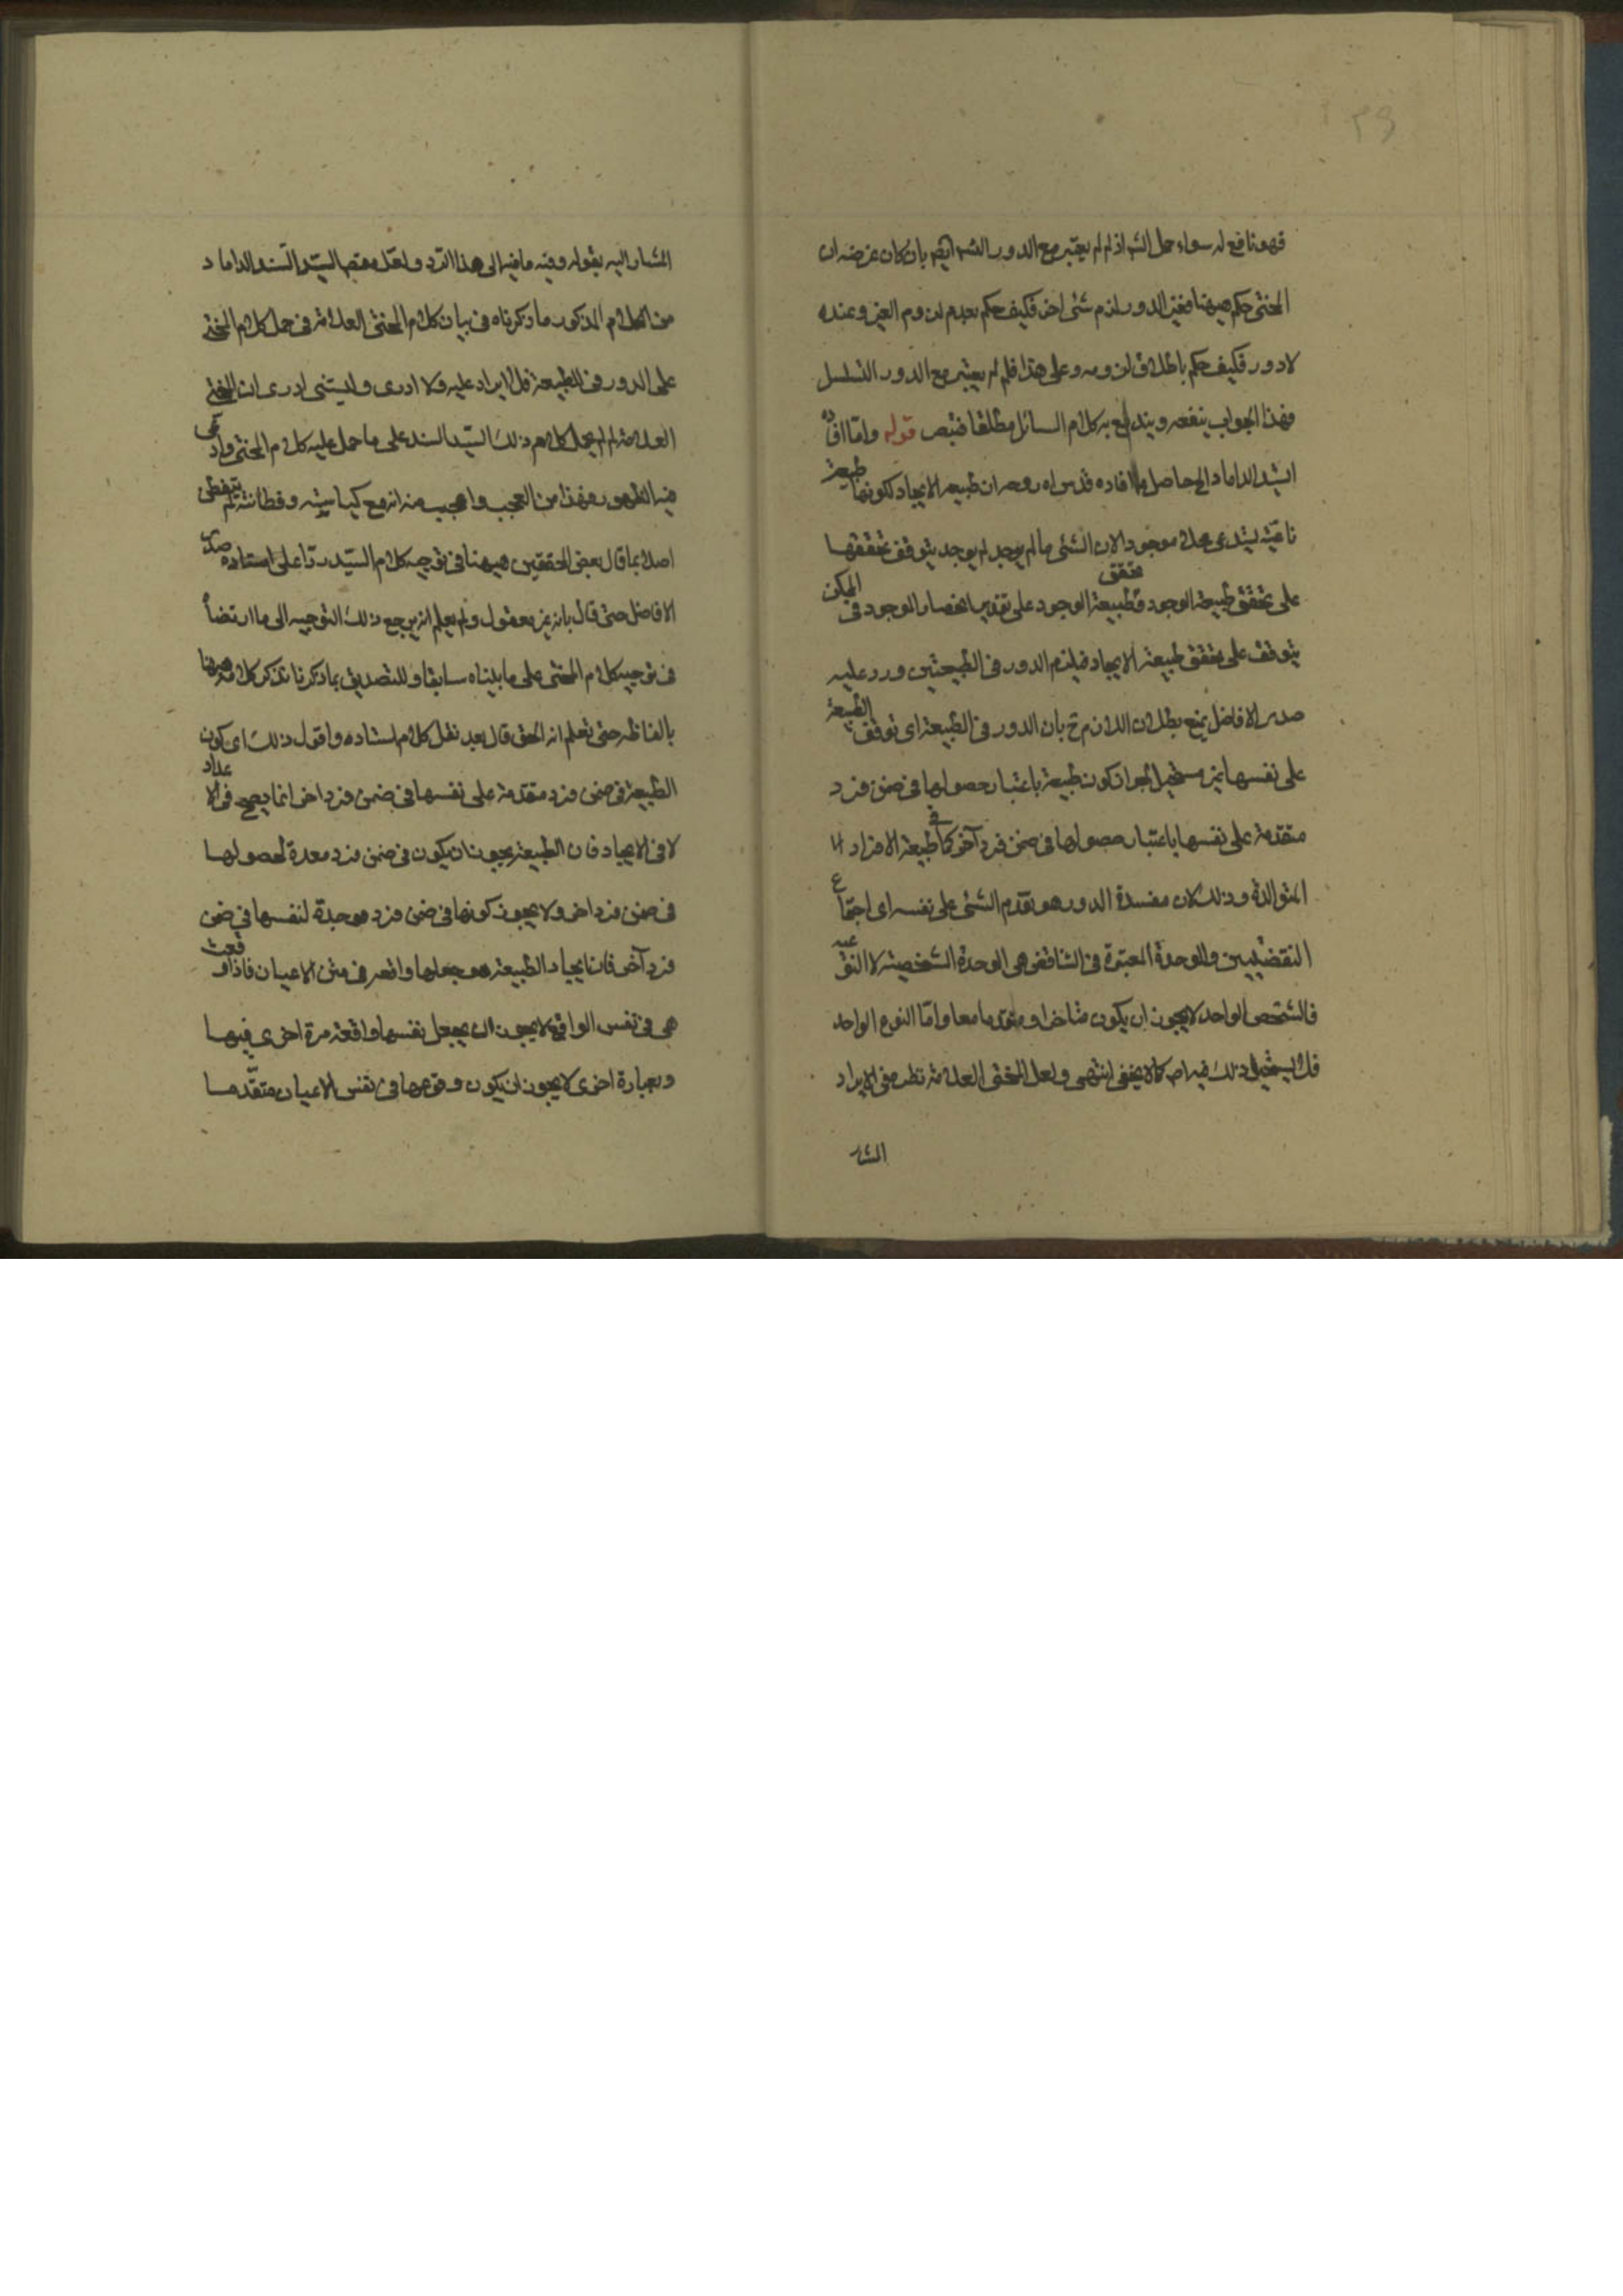 ٣٩
فهو نافع له سواء حمل الش اذ لم لم يعتبر مع الدور الش ايض بان كان غرضه ان
المحشى حكم ههنا فغير الدور لزم شئ اخر فكيف حكم بعدم لزوم الغير وعنده
لا دور فكيف حكم باطلاق لزومه وعلى هذا فلم لم يعتبر مع الدور التسلسل
فهذا الجواب ينفعه ويندفع به كلام السائل مطلقا فتبصر قوله واما افاده
السيد الداماد الخ حاصل ما افاده قدس اه روحه ان طبيعة الايجاد لكونها طبيعة
ناعتية يستدعى محلا موجودا لان الشئ ما لم يوجد لم يوجد يتوقف تحققها
على تحقق طبيعة الوجود وطبيعة الوجود على تقدير انحصار الوجود فى الممكن
يتوقف تحقق على تحقق طبيعة الايجاد فيلزم الدور فى الطبيعتين وورد عليه
صدر الافاضل بمنع بطلان اللازم ح بان الدور فى الطبيعة اى توقف الطبيعة
على نفسها غير مستحيل لجواز كون طبيعة باعتبار حصولها فى ضمن فرد
متقدمة على نفسها باعتبار حصولها فى ضمن فرد آخر كما فى طبيعة الافراد
المتوالدة وذلك لان مفسدة الدور هو تقدم الشئ على نفسه اى اجتماع
النقيضين والوحدة المعتبرة فى التناقض هى الوحدة الشخصية لا النوعية
فالشخص الواحد لا يجوز ان يكون متاخرا ومتقدما معا واما النوع الواحد
فلا يستحيل ذلك فيه اصلا كما لا يخفى انتهى ولعل المحشى العلامة نظر فى الايراد
المشار
المشار اليه بقوله وفيه ما فيه الى هذا الرد ولعل مقصد السيد السند الداماد
من الكلام المذكور ما ذكرناه فى بيان كلام المحشى العلامة فى حمل كلام المحشى
على الدور فى الطبيعة فلا ايراد عليه ولا ادرى وليتنى ادرى ان المحشى
العلامة لم لم يحمل كلام ذلك السيد السند على ما حمل عليه كلام المحشى وادعى
فيه الظهور وهذا من العجب واعجب منه انه مع كياسته وفطانته لم يتفطن
اصلا بما قال بعض المحققين ههنا فى توجيه كلام السيد ردا على استاده صدر
الافاضل حتى قال بانه غير معقول ولم يعلم انه يرجع ذلك التوجيه الى ما ارتضاه
فى توجيه كلام المحشى على ما بيناه سابقا وللتصديق بما ذكرنا نذكر كلامه ههنا
بالفاظه حتى تعلم انه الحق قال بعد نقل كلام استاده واقول ذلك اى كون
الطبيعة فى ضمن فرد متقدمة على نفسها فى ضمن فرد اخر انما يصح فى الاعداد
لا فى الايجاد فان الطبيعة يجوز ان يكون فى ضمن فرد معدة لحصولها
فى ضمن فرد اخر ولا يجوز كونها فى ضمن فرد موجدة لنفسها فى ضمن
فرد آخر فان ايجاد الطبيعة هو جعلها واقعه فى متن الاعيان فاذا وقعت
هى فى نفس الواقع لا يجوز ان يجعل نفسها واقعة مرة اخرى فيها
وبعبارة اخرى لا يجوز ان يكون وقوعها فى نفس الاعيان متقدما